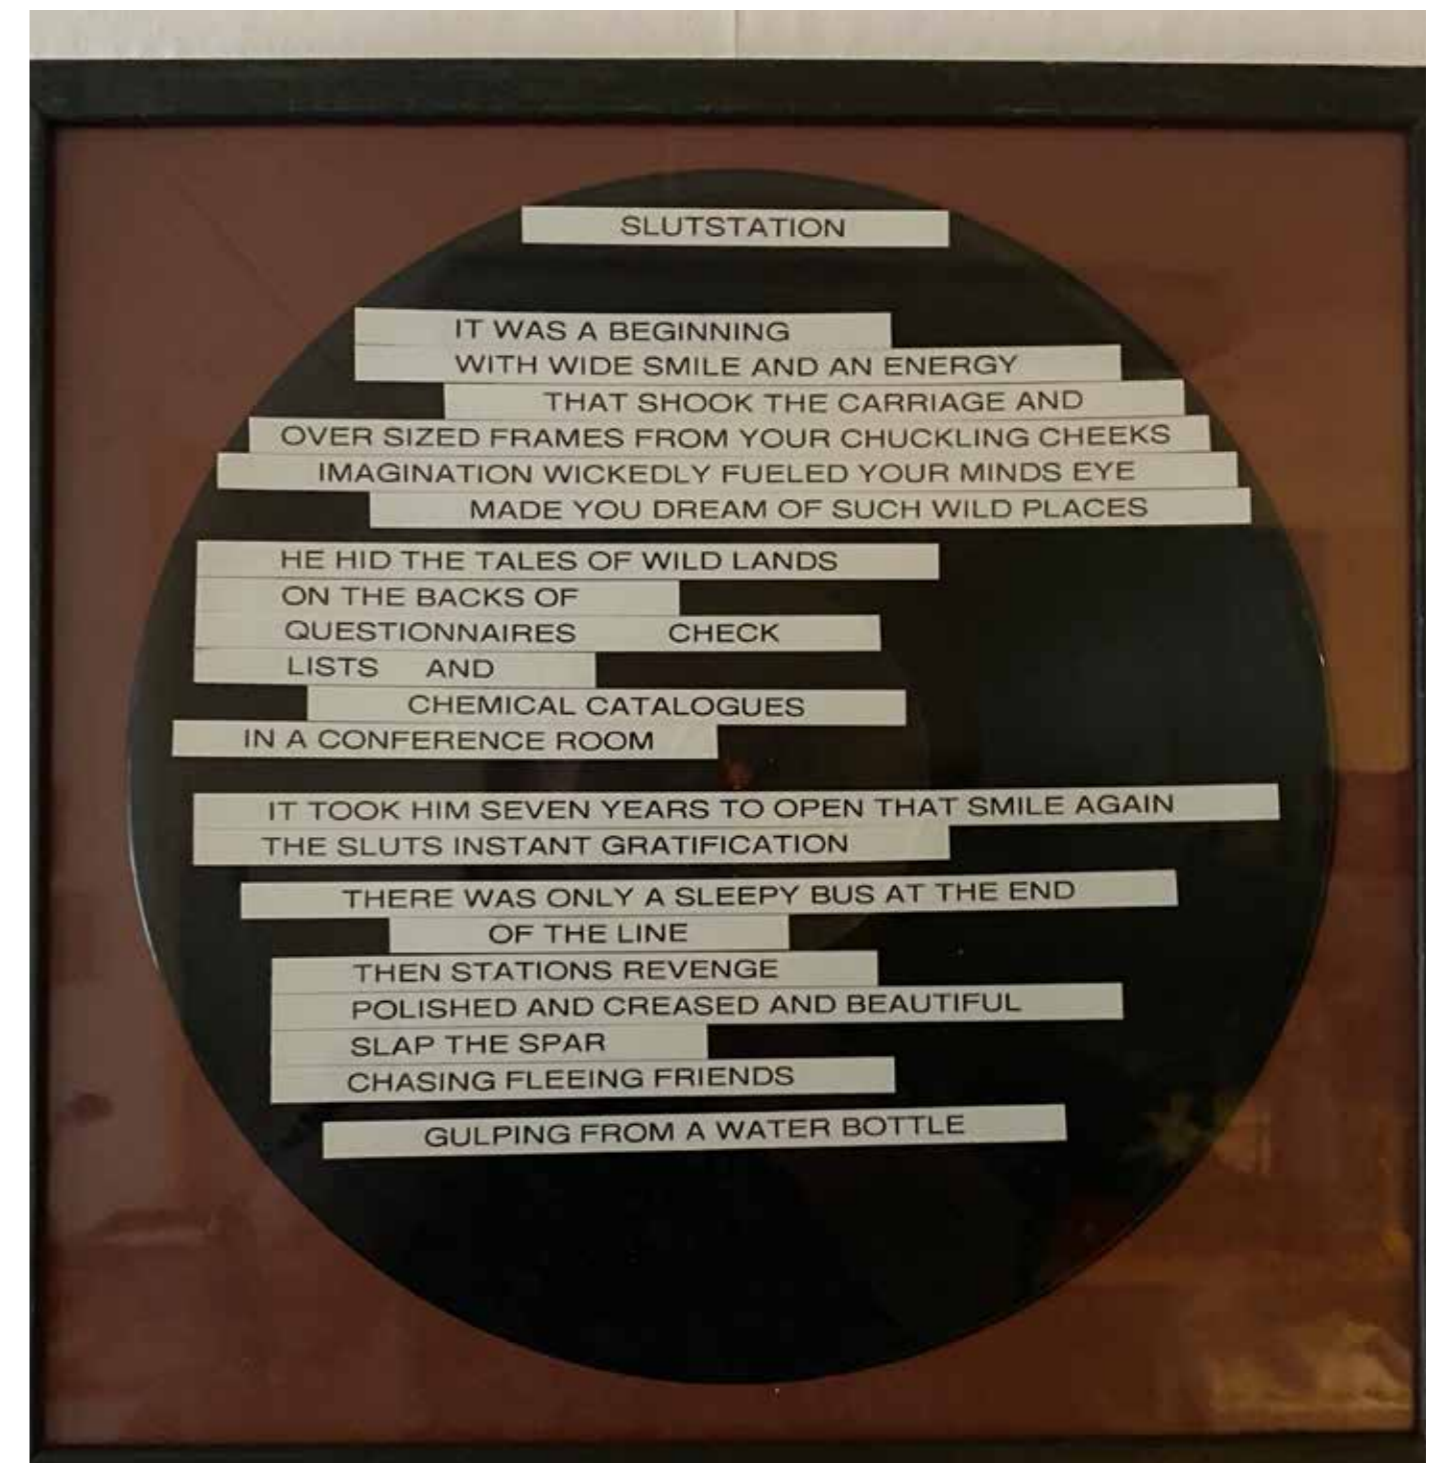 SLUTSTATION
IT WAS A BEGINNING
WITH WIDE SMILE AND AN ENERGY
THAT SHOOK THE CARRIAGE AND
OVER SIZED FRAMES FROM YOUR CHUCKLING CHEEKS
IMAGINATION WICKEDLY FUELED YOUR MINDS EYE
MADE YOU DREAM OF SUCH WILD PLACES
HE HID THE TALES OF WILD LANDS
ON THE BACKS OF
QUESTIONNAIRES CHECK
LISTS AND
CHEMICAL CATALOGUES
IN A CONFERENCE ROOM
IT TOOK HIM SEVEN YEARS TO OPEN THAT SMILE AGAIN
THE SLUTS INSTANT GRATIFICATION
THERE WAS ONLY A SLEEPY BUS AT THE END
OF THE LINE
THEN STATIONS REVENGE
POLISHED AND CREASED AND BEAUTIFUL
SLAP THE SPAR
CHASING FLEEING FRIENDS
GULPING FROM A WATER BOTTLE